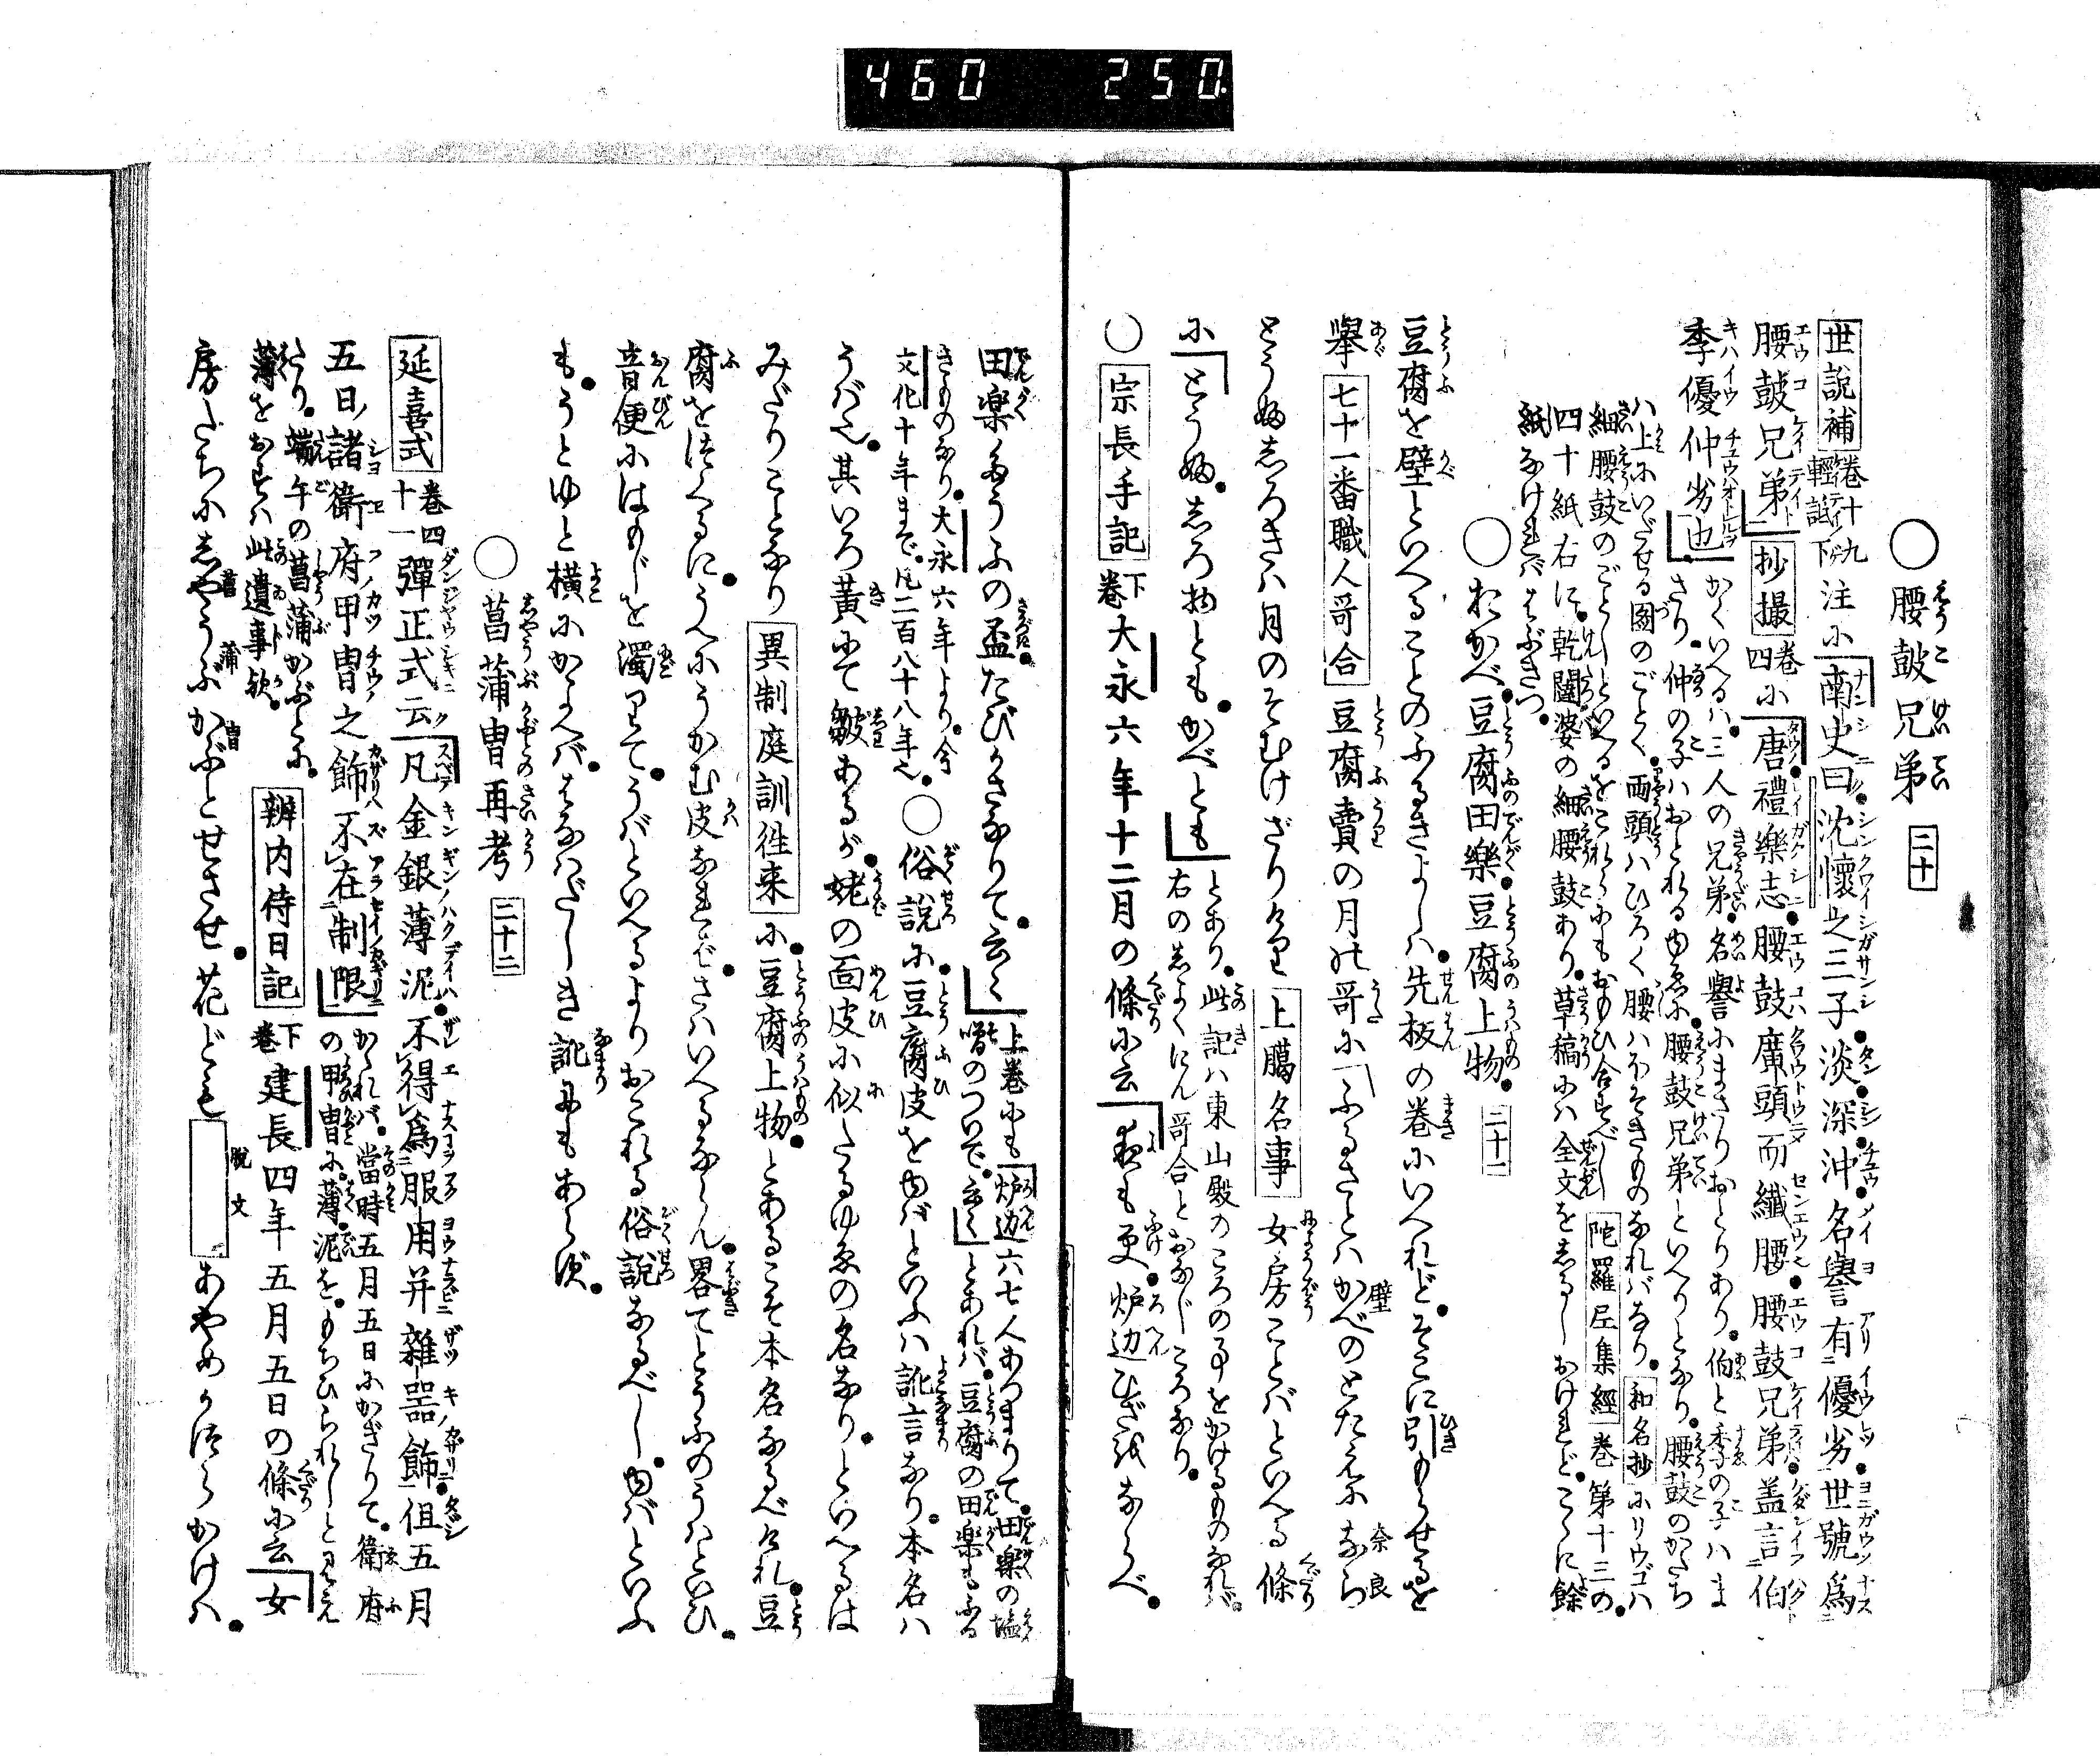 460 250
○腰鼓兄弟 二十
世説補 巻十九 輕詆下 注に南史曰沈懷之三子淡深沖名譽有優劣世號爲
腰鼓兄弟 抄撮 巻四 に唐禮樂志腰鼓廣頭而纖腰腰鼓兄弟盖言伯
季優仲劣也 かくいへるハ三人の兄弟名譽にまさりおとりあり伯と季の子ハま
さり仲の子ハおとれるゆゑに腰鼓兄弟といへりとなり腰鼓のかたち
ハ上にいだせる圖のごとく両頭ハひろく腰ハほそきものなればなり 和名抄 にリウゴハ
細腰鼓のごとしといへるをこれらにもおもひ合すべし 陀羅尼集經 巻第十三の
四十紙右に乾闥婆の細腰鼓あり草稿にハ全文をしるしおけれどこゝに餘
紙なければはぶきつ
○おかべ豆腐田樂豆腐上物 二十一
豆腐を壁といへることのふるきよしハ先板の巻にいへれどそこに引もらせるを
擧 七十一番職人哥合 豆腐賣の月の哥にふるさとハかべのとだえになら
とうふしろきハ月のそむけざりけり 上臈名事 女房ことばといへる條
にとうふしろ物ともかべとも とあり此記ハ東山殿のころの事をかけるものなれば
右のしよくにん哥合とおなじころなり
○ 宗長手記 下巻 大永六年十二月の條に云夜も更炉辺ひざをならべ
田楽たうふの盃たびかさなりて云〻 上巻にも炉辺六七人あつまりて田楽の塩
噌のついで云〻とあれバ豆腐の田楽もふる
きものなり大永六年より今
文化十年まで凡二百八十八年也 ○俗説に豆腐皮をゆばといふハ訛言なり本名ハ
うば也其いろ黄にて皺あるが姥の面皮に似たるゆゑの名なりといへるは
みだりことなり 異制庭訓徃来 に豆腐上物とあるこそ本名なるべけれ豆
腐を作るにうへにうかむ皮なればさハいへるならん畧てとうふのうはといひ
音便にはもじを濁りてうばといへるよりおこれる俗説なるべしゆばといふ
もうとゆと横にかよへバはなハだしき訛にもあらず
○菖蒲冑再考 二十二
延喜式 巻四十一 彈正式云凡金銀薄泥不得爲服用并雜噐飾但五月
五日諸衛府甲冑之飾不在制限 かゝれバ當時五月五日にかぎりて衛府
の甲冑に薄泥をもちひられしと見え
たり端午の菖蒲かぶとに
薄をおすハ此遺事欤 辨内侍日記 下巻 建長四年五月五日の條に云女
房たちにしやうぶかぶとせさせ花ども 脱文 あやめかづらかけハ